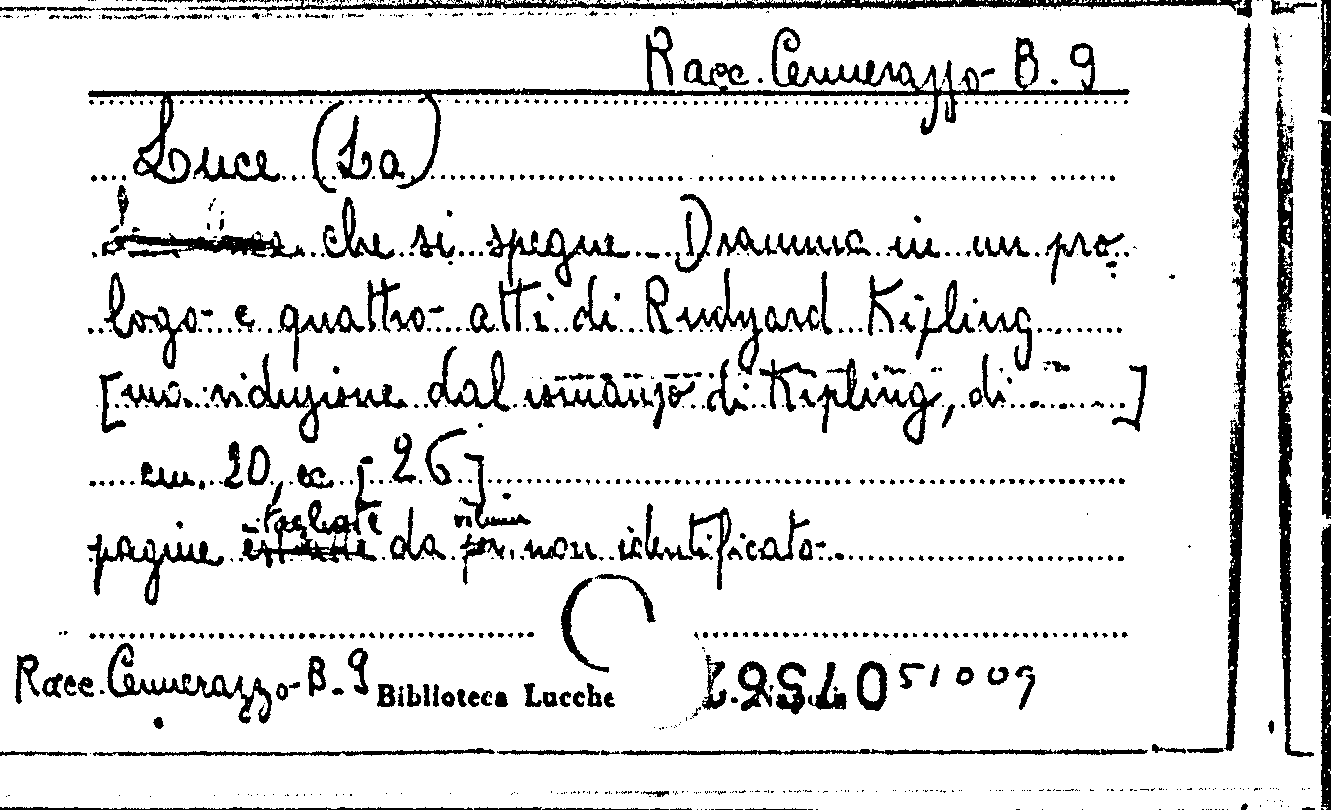 Racc. Cennerazzo - B. 9
Luce (La)
che si spegne - Dramma in un pro-
logo e quattro atti di Rudyard Kipling
[ma riduzione dal romanzo di Kipling, di ........]
cm. 20, cc [26]
tagliate volume
pagine estratte da per. non identificato.
Racc. Cennerazzo - B. 9 Biblioteca Lucche 51009